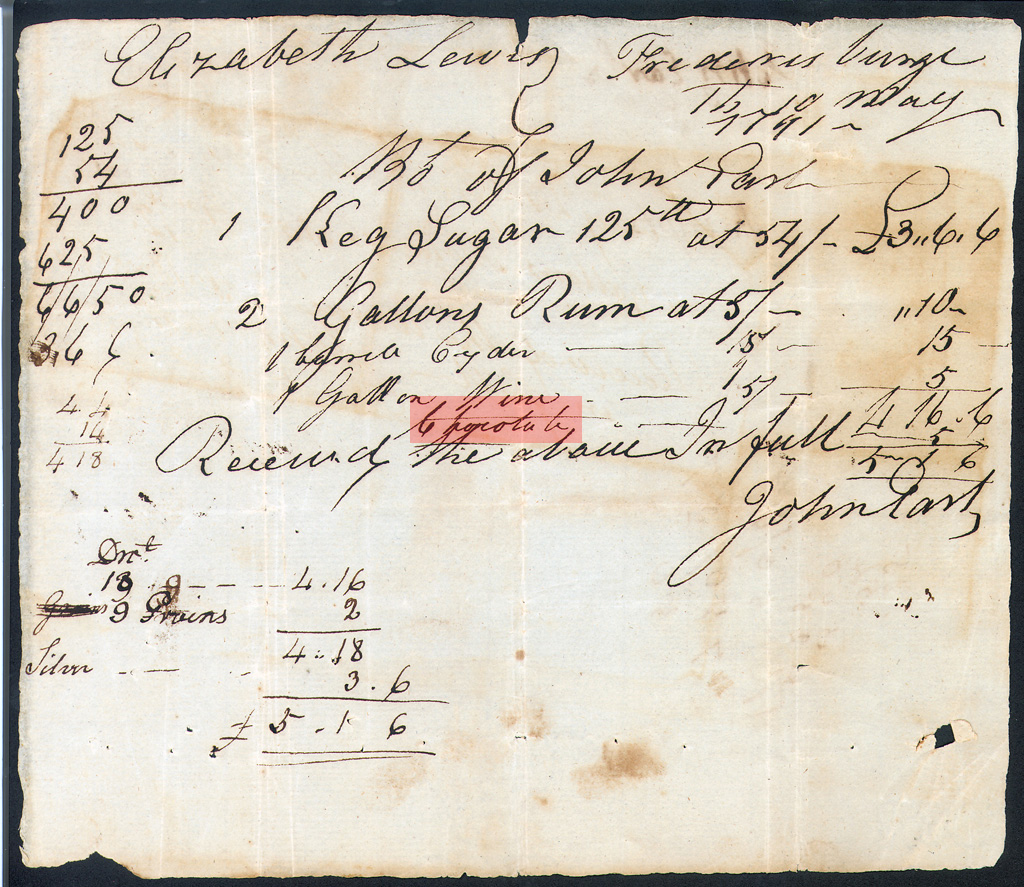 Elizabeth Lewis Fredericsburge
Th 10 May
1791
Bo of John Cart
125
54
400
625
6650
366
44
14
418
1 Keg Sugar 125 lb at 54/- £3,,6,6
2 Gallons Rum at 5/- ,,10-
1 barrele Cyder 15 - 15
1 Gallon Wine 5/ - 5
Chocolate 4 16.6
5
Received the above In full 5 1 6
John Cart
Dwt
18 9 - - - 4.16
9 Grains 2
4..18
Silver 3.6
£ 5.1 6